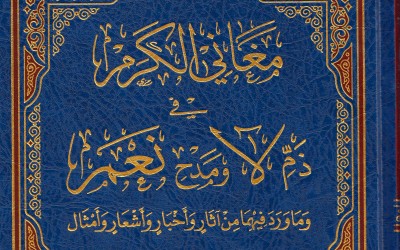 مَغَاني الكَرَم
في
ذَمِّ لَا وَمَدح نَعَم
وَمَا وَرَدَ فِيهِمَا مِنْ آثَارٍ وَأَخْبَارٍ وَأَشْعَارٍ وَأَمْثَال